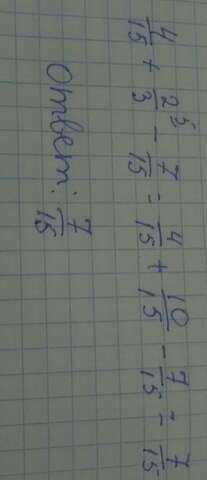 4/15 + 2/3⁵ - 7/15 = 4/15 + 10/15 - 7/15 = 7/15
Ответ: 7/15